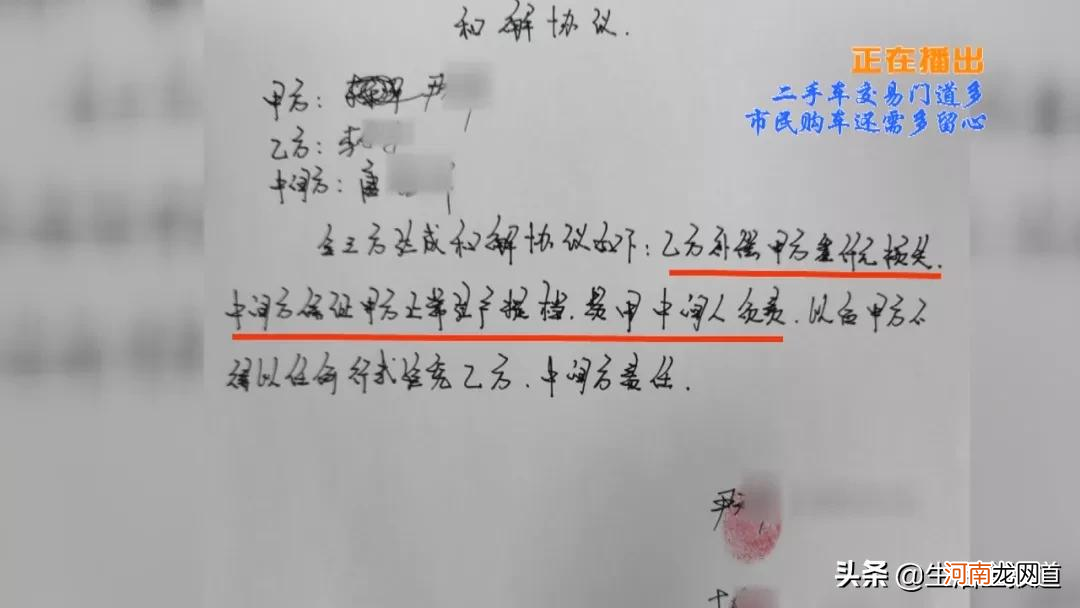 和解协议.
正在播出
二手车交易门道多
市民购车还需多留心
甲方: 尹
乙方: 李
中间方: 唐
全三方达成和解协议如下: 乙方补偿甲方壹仟元损失.
中间方保证甲方正常过户提档. 费用中间人负责. 以后甲方不
得以任何行式追究乙方. 中间方责任.
尹
头条 @生活
河南龙网首